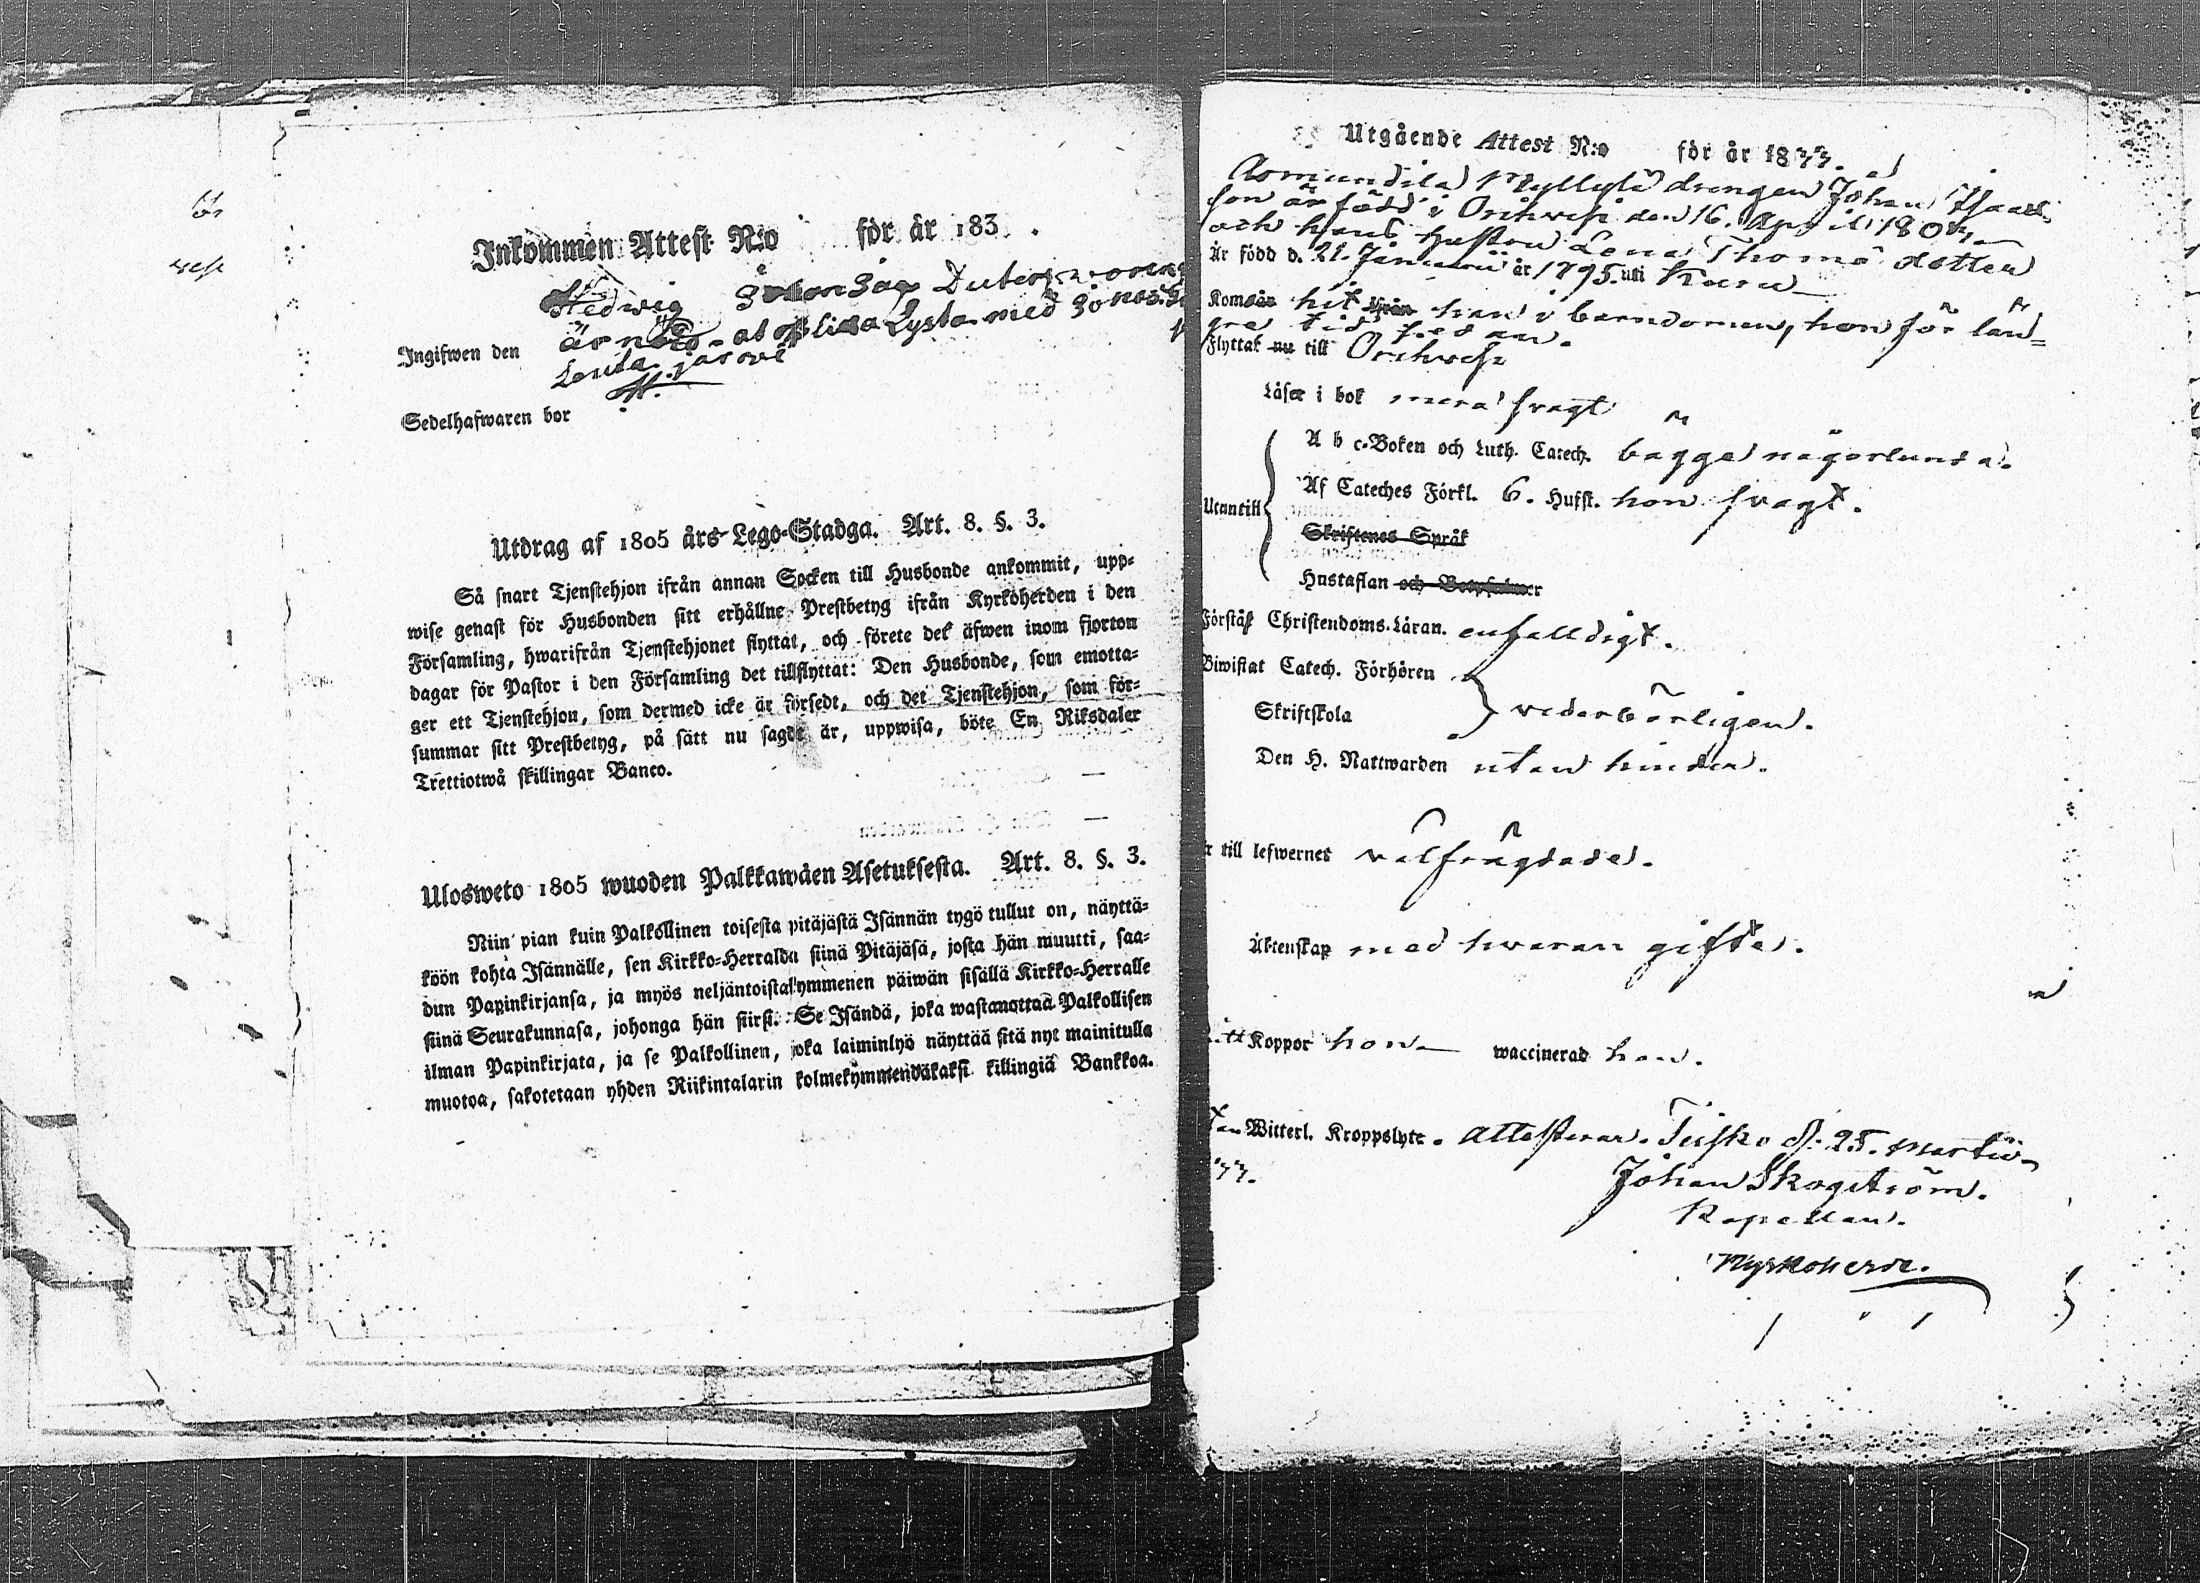 Inkommen Attest N:o för är 183 .
Hedwig
Ingifwen den
Sedelhafwaren bor
Utdrag af 1805 års Lego-Stadga. Art. 8. §. 3.
Så snart Tjenstehjon ifrån annan Socken till Husbonde ankommit, upp-
wise genast för Husbonden sitt erhållne Prestbetyg ifrån Kyrkoherden i den
Församling, hwarifrån Tjenstehjonet flyttat, och förete det äfwen inom fjorton
dagar för Pastor i den Församling det tillflyttat: Den Husbonde, som emotta-
ger ett Tjenstehjon, som dermed icke är försedt, och det Tjenstehjon, som för-
summar sitt Prestbetyg, på sätt nu sagdt är, uppwisa, böte En Riksdaler
Trettiotwå skillingar Banco.
Ulosweto 1805 wuoden Palkkawäen Asetuksesta. Art. 8. §. 3.
Niin pian kuin Palkollinen toisesta pitäjästä Isännän tygö tullut on, näyttä-
köön kohta Isännälle, sen Kirkko-Herralda siinä Pitäjäsä, josta hän muutti, saa-
dun Papinkirjansa, ja myös neljäntoistakymmenen päiwän sisällä Kirkko-Herralle
siinä Seurakunnasa, johonga hän siirsi. Se Isändä, joka wastanottaa Palkollisen
ilman Papinkirjata, ja se Palkollinen, joka laiminlyö näyttää sitä nyt mainitulla
muotoa, sakotetaan yhden Riikintalarin kolmekymmendäkaksi killingiä Bankkoa.
Utgående Attest N:o för år 1833.
Myllylä drengen Johan Isaacs
son är född i Orihvesi den 16. April 180
och hans hustru Lena Thomä dotter
Är född d. 21. Januarii år 1795. uti Kuru
Kom hit han i barndomen, hon för län=
gre tid sedan.
Flyttat nu till Orihvesi
Läser i bok mera svagt
A b c-Boken och Luth. Catech. bägge någorlunda.
Utantill Af Cateches Förkl. 6. Hufst. hon svagt.
Skriftenes Språk
Hustaflan och Botpsalmer
Förstår Christendoms-Läran. enfalldigt.
Biwistat Catech. Förhören
Skriftskola vederbörligen.
Den H. Nattwarden utan hinder.
r till lefwernet välfrägdade.
Äktenskap med hvaran gifte.
itt Koppor hon waccinerad han.
tan Witterl. Kroppslyte. attesterar. Teisko d. 25. Martii
33.
Johan Skogström.
Kapellan.